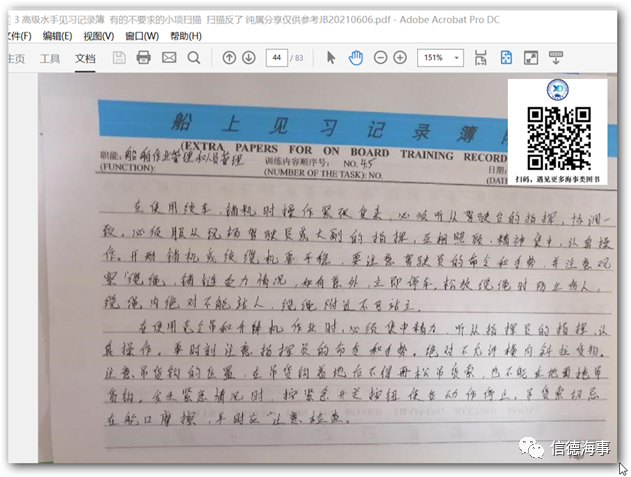 3 高级水手见习记录簿 有的不要求的小项扫描 扫描反了 纯属分享仅供参考JB20210606.pdf - Adobe Acrobat Pro DC
文件(F) 编辑(E) 视图(V) 窗口(W) 帮助(H)
主页 工具 文档 44 / 83 151%
船上见习记录簿
(EXTRA PAPERS FOR ON BOARD TRAINING RECORD
职能: 船舶作业管理和人员管理 训练内容顺序号: NO.45 日期:
(FUNCTION): (NUMBER OF THE TASK): NO. (DATE
扫码,遇见更多海事类图书
在使用绞车、锚机时操作紧张复杂,必须听从驾驶员的指挥,协调一
致。必须服从现场驾驶员或大副的指挥,互相照顾,精神集中,认真操
作。开动锚机或绞缆机要平稳,要注意驾驶员的命令和手势,并注意观
察缆绳,锚链受力情况,如有意外,立即停车。松放缆绳时防止伤人,
缆绳内绝对不能站人,缆绳附近不可站立。
在使用克令吊和升降机作业时,必须集中精力,听从指挥员的指挥,认
真操作。要时刻注意指挥员的命令和手势。绝对不允许横向斜拉货物。
注意吊货钩的位置,在吊货钩着地后不得再松吊货索,也不能在地面拖吊
货钩。发生紧急情况时,按紧急开关按钮使各动作停止,吊货索切忌
在舱口摩擦,平时应注意检查。
信德海事